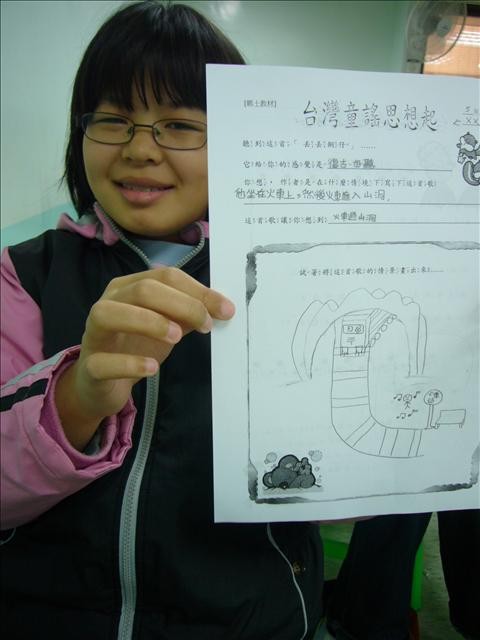 [鄉土教材]
台灣童謠思想起
聽到這首「丟丟銅仔」……
它給你的感覺是 復古、
你想，作者是在什麼情境下寫下這首歌
他坐在火車上，然後火車進入山洞，
這首歌讓你想到 火車過山洞
試著將這首歌的情景畫出來……